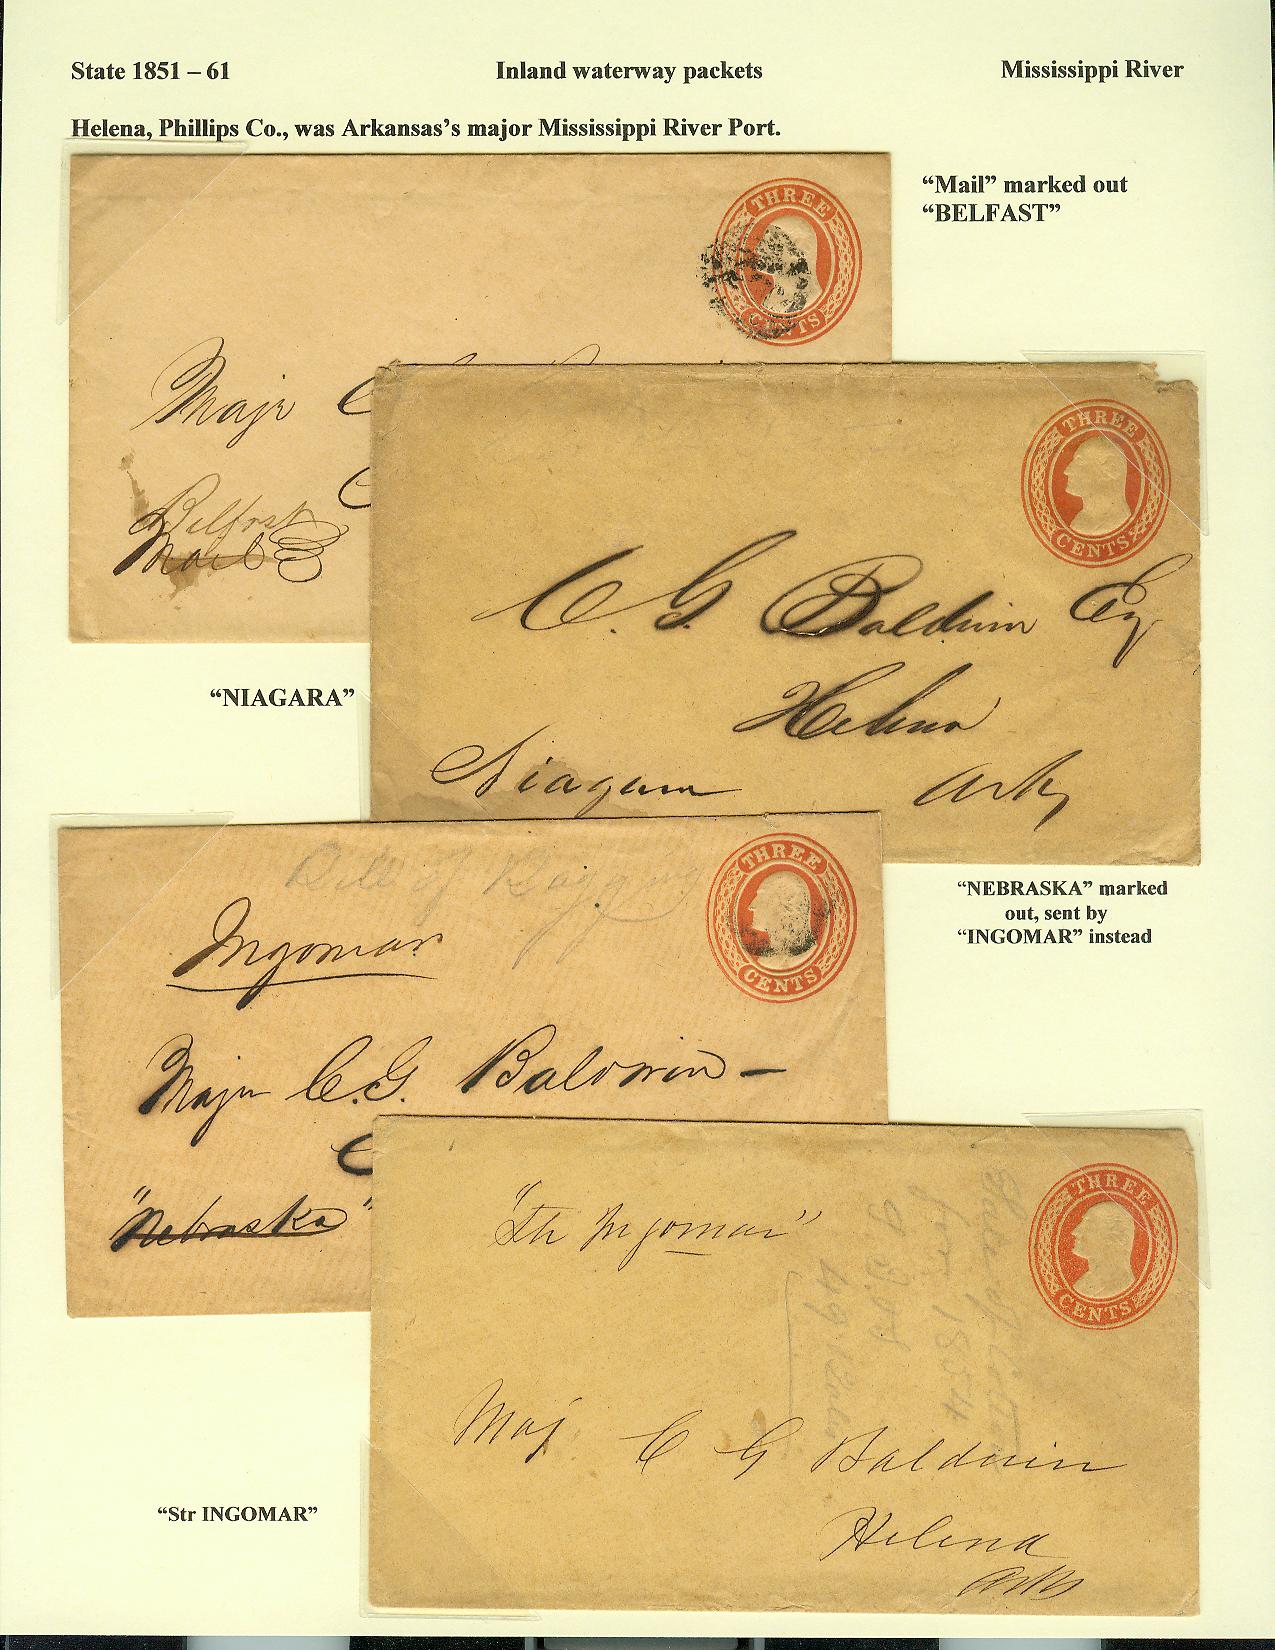 State 1851 – 61 Inland waterway packets Mississippi River
Helena, Phillips Co., was Arkansas's major Mississippi River Port.
"Mail" marked out
"BELFAST"
THREE
CENTS
Majr C
C
Belfast
Mail
THREE
CENTS
C. G. Baldwin Esq
Helena
Niagara Ark
"NIAGARA"
"NEBRASKA" marked
out, sent by
"INGOMAR" instead
Bill of Bagging
THREE
CENTS
Ingomar
Major C.G. Baldwin –
C
"Nebraska"
THREE
CENTS
"Str Ingomar"
1854
49 Bales
Maj. C G Baldwin
Helena
Arks
"Str INGOMAR"